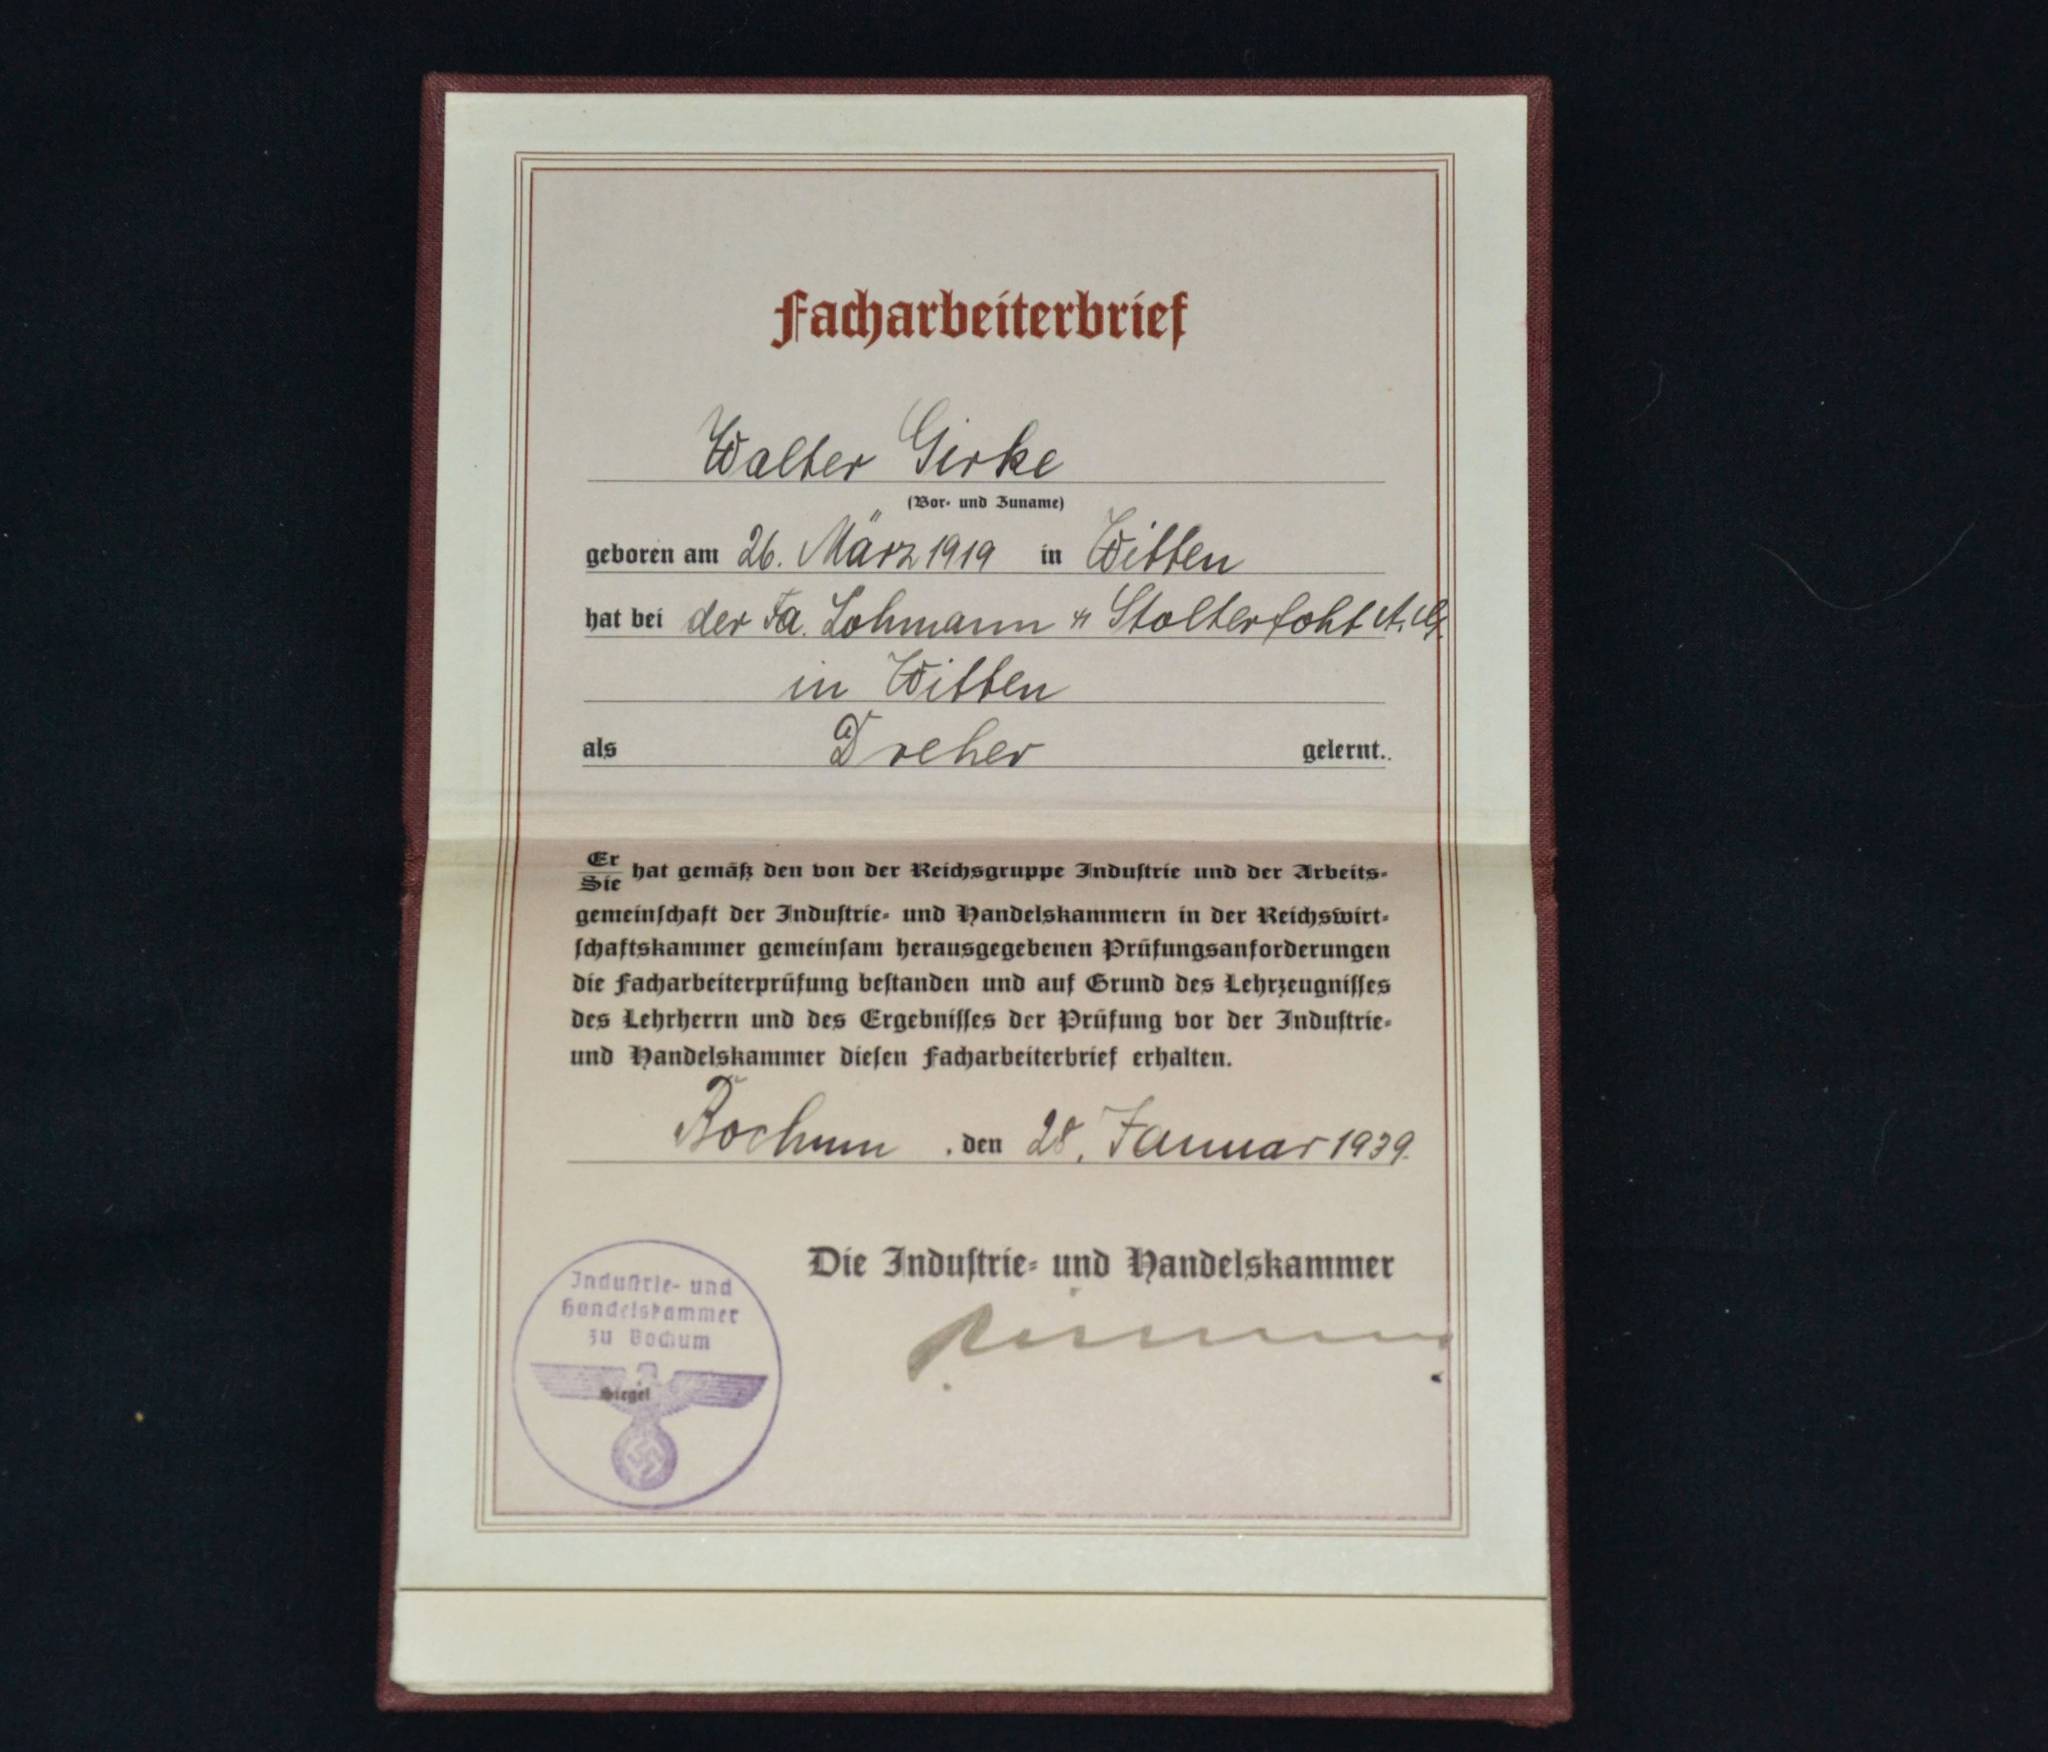 Facharbeiterbrief
Walter Girke
(Vor- und Zuname)
geboren am 26. März 1919 in Witten
hat bei der Fa. Lohmann & Stolterfoht A.G.
in Witten
als Dreher gelernt.
Er
Sie
hat gemäß den von der Reichsgruppe Industrie und der Arbeits-
gemeinschaft der Industrie- und Handelskammern in der Reichswirt-
schaftskammer gemeinsam herausgegebenen Prüfungsanforderungen
die Facharbeiterprüfung bestanden und auf Grund des Lehrzeugnisses
des Lehrherrn und des Ergebnisses der Prüfung vor der Industrie-
und Handelskammer diesen Facharbeiterbrief erhalten.
Bochum, den 28. Januar 1939.
Die Industrie- und Handelskammer
Industrie- und
Handelskammer
zu Bochum
Siegel